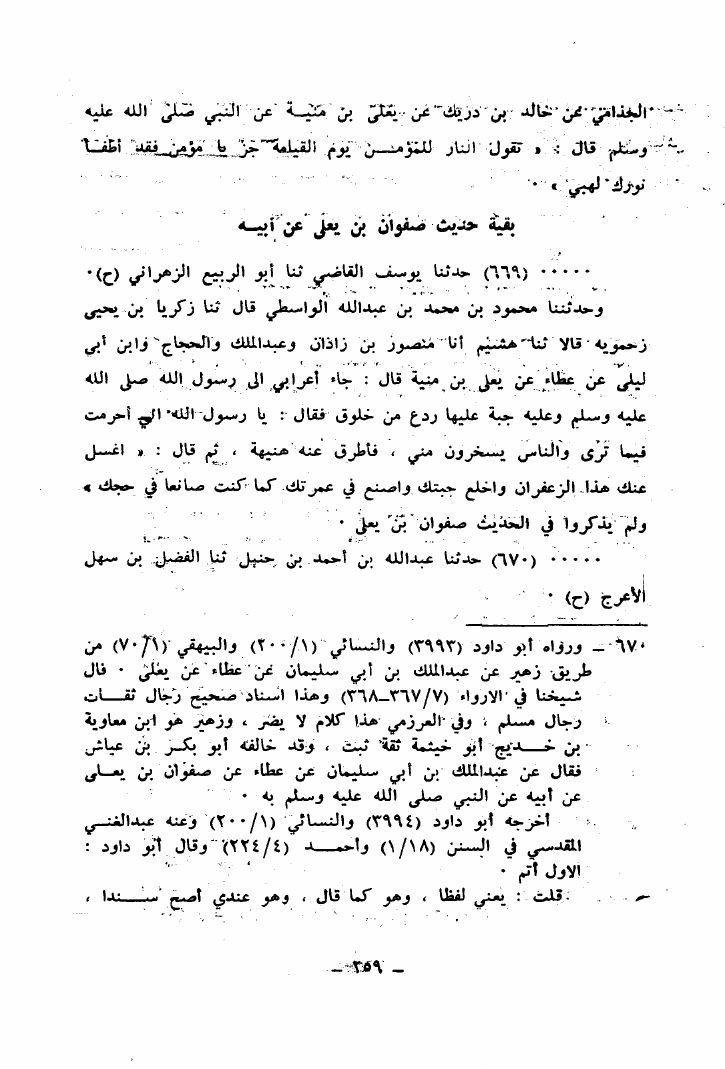 الجذامي عن خالد بن دريك عن يعلى بن منيـة عن النبي صلى الله عليه
وسلم قال : « تقول النار للمؤمـــن يوم القيامة جز يا مؤمن فقد أطفـأ
نورك لهبي » ٠
بقية حديث صفوان بن يعلى عن أبيــه
٠٠٠٠٠ (٦٦٩) حدثنا يوسف القاضي ثنا أبو الربيع الزهراني (ح)٠
وحدثنا محمود بن محمد بن عبدالله الواسطي قال ثنا زكريا بن يحيى
زحمويه قالا ثنا هشيم أنا منصور بن زاذان وعبدالملك والحجاج وابن أبي
ليلى عن عطاء عن يعلى بن منية قال : جاء أعرابي الى رسول الله صلى الله
عليه وسلم وعليه جبة عليها ردع من خلوق فقال : يا رسول الله اني أحرمت
فيما ترى والناس يسخرون مني ، فأطرق عنه هنيهة ، ثم قال : « اغسل
عنك هذا الزعفران واخلع جبتك واصنع في عمرتك كما كنت صانعاً في حجك »
ولم يذكروا في الحديث صفوان بن يعلى ٠
٠٠٠٠٠ (٦٧٠) حدثنا عبدالله بن أحمد بن حنبل ثنا الفضل بن سهل
الأعرج (ح) ٠
٦٧٠ ـ ورواه أبو داود (٣٩٩٣) والنسائي (٢٠٠/١) والبيهقي (٧٠/١) من
طريق زهير عن عبدالملك بن أبي سليمان عن عطاء عن يعلى ٠ قال
شيخنا في الارواء (٣٦٧/٧ــ٣٦٨) وهذا اسناد صحيح رجال ثقــات
رجال مسلم ، وفي العرزمي هذا كلام لا يضر ، وزهير هو ابن معاوية
بن خـــديج أبو خيثمة ثقة ثبت ، وقد خالفه أبو بكــر بن عياش
فقال عن عبدالملك بن أبي سليمان عن عطاء عن صفوان بن يعــلى
عن أبيه عن النبي صلى الله عليه وسلم به ٠
أخرجه أبو داود (٣٩٩٤) والنسائي (٢٠٠/١) وعنه عبدالغنــي
المقدسي في السنن (١/١٨) وأحمـــد (٢٢٤/٤) وقال أبو داود :
الاول أتم ٠
قلت : يعني لفظا ، وهو كما قال ، وهو عندي أصح ســـندا ،
ــ ٣٥٩ ــ